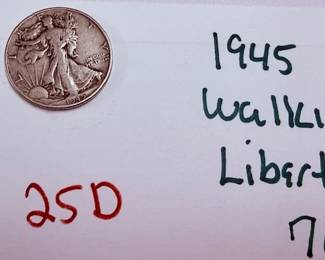 1945
Walki
Libert
25D